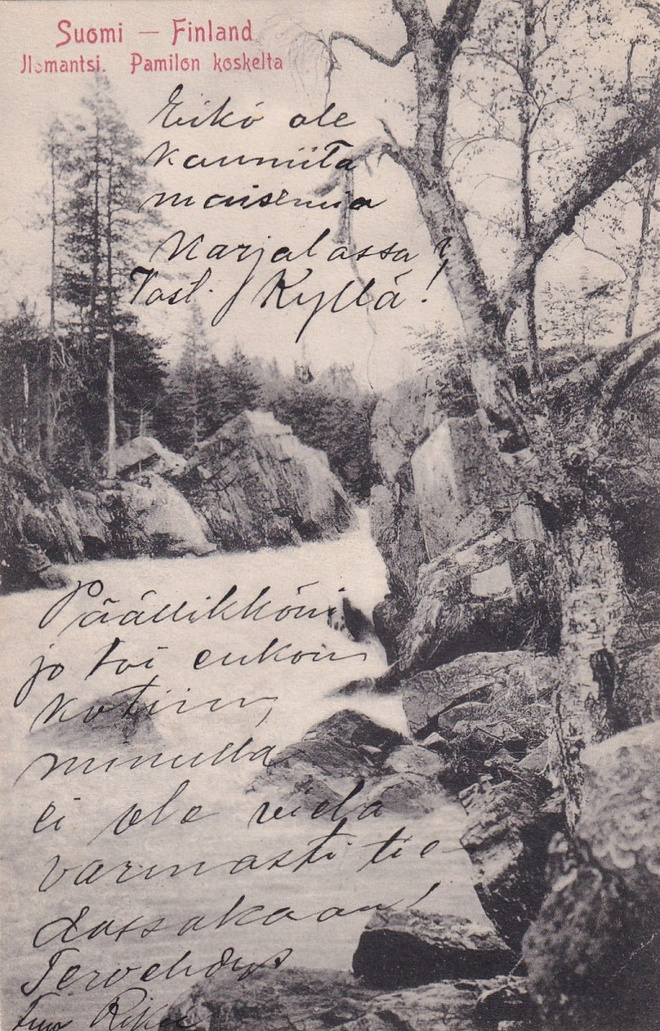 Suomi — Finland
Ilomantsi. Pamilon koskelta
Eikö ole
kauniita
maisemia
Karjalassa?
Vast. Kyllä!
Päällikköni
jo toi eukon
kotiin,
minulla
ei ole vielä
varmasti tie-
dossakaan!
Tervehdys